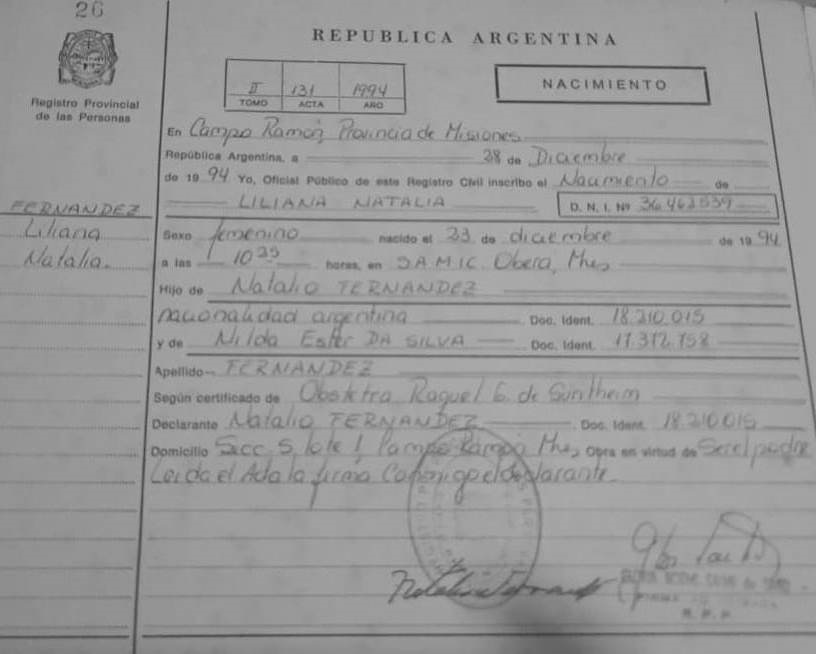 26
REPUBLICA ARGENTINA
II 131 1994
TOMO ACTA AÑO
NACIMIENTO
Registro Provincial
de las Personas
En Campo Ramón, Provincia de Misiones
República Argentina, a 28 de Diciembre
de 1994 Yo, Oficial Público de este Registro Civil inscribo el Nacimiento de
LILIANA NATALIA D. N. I. Nº 36.463.539
FERNANDEZ
Liliana
Natalia.
Sexo femenino nacido el 23 de diciembre de 1994
a las 10 35 horas, en SAMIC. Oberá, Mnes
Hijo de Natalio FERNANDEZ
nacionalidad argentina Doc. Ident. 18.210.015
y de Nilda Ester DA SILVA Doc. Ident. 17.372.758
Apellido FERNANDEZ
Según certificado de Obstetra Raquel G. de Guntheim
Declarante Natalio FERNANDEZ Doc. Ident. 18.210.015
Domicilio Secc. 5, lote 1 Campo Ramón Mnes Obra en virtud de Ser el padre
Leída el Acta la firma Conmigo el declarante.
R. P. P.